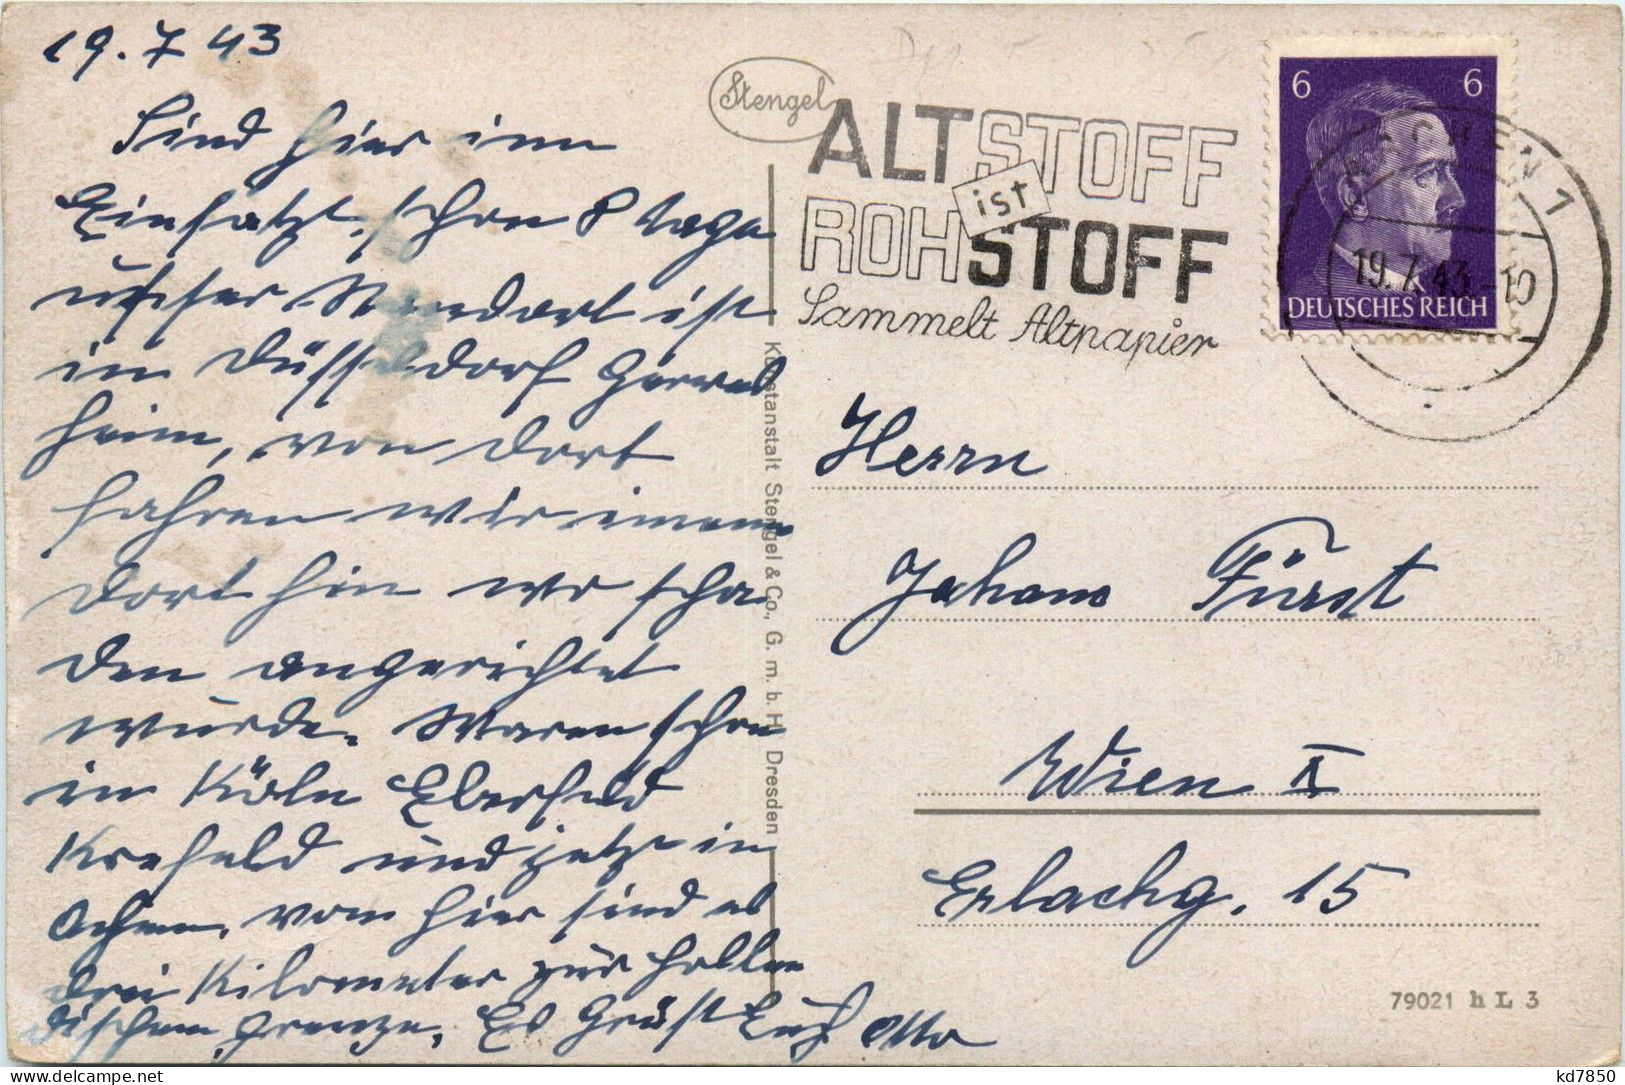 19. 7 43
Sind hier im
Einsatz, schon 8 Tage
unser Standort ist
in Düsseldorf Gerres
heim, von dort
fahren wir immer
dort hin wo scha
den angerichtet
wurde. Waren schon
in Köln Eberfeld
Krefeld und jetzt in
Achen, von hier sind es
drei Kilometer zur hollen
dischen grenze. Es Grüst Euch Otto
Stengel
ALTSTOFF
ist
ROHSTOFF
Sammelt Altpapier
6 6
DEUTSCHES REICH
AACHEN 1
19.7.43.-10
Kunstanstalt Stengel & Co., G. m. b. H. Dresden
Herrn
Johann Fürst
Wien X
Erlachg. 15
79021 h L 3
kd7850